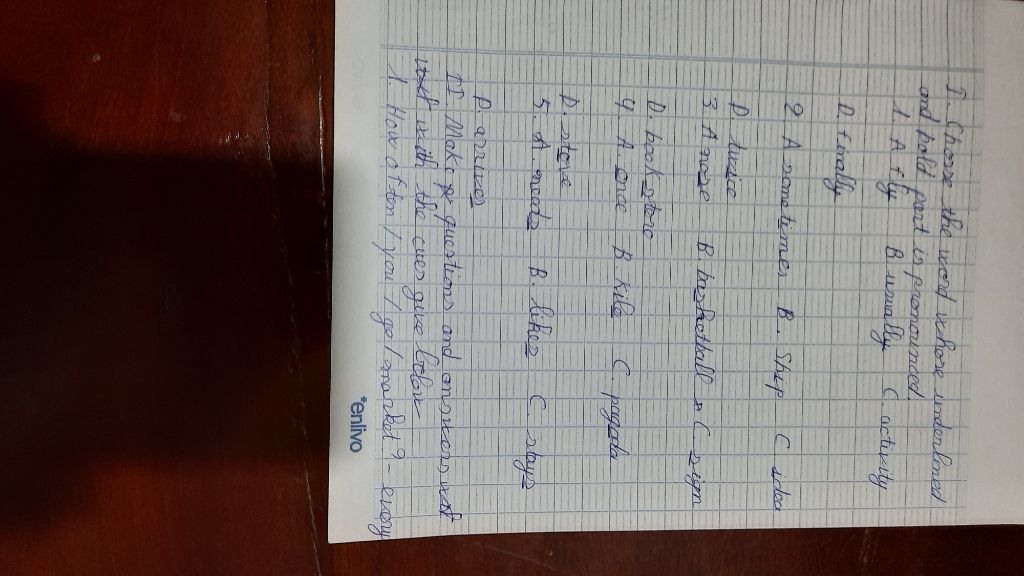 I. Choose the word whose underlined
and boldt part is pronounced.
1. A fly B usually C activity
D. finally
2 A sometimes B. Skip C idea
D. twice
3 A nose B. basketball C. sign
D. bookstore
4. A once B kilo C. pagoda
D. store
5. A. meets B. likes C. stays
D. arrives
II Make questions and answers
with the cues give below
1. How often / you / go / market? - every
*enlivo